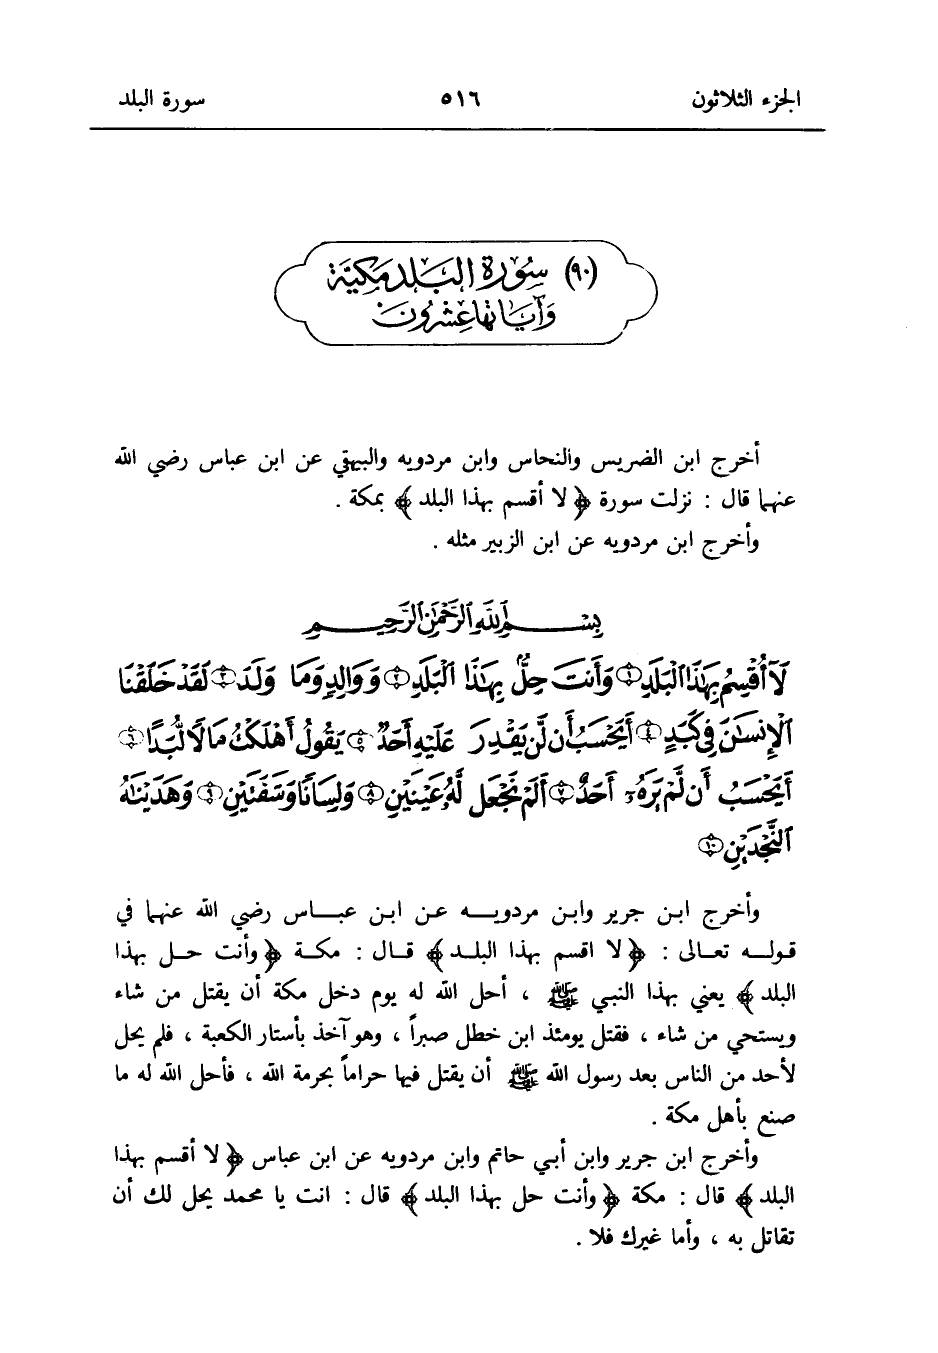 الجزء الثلاثون ٥١٦ سورة البلد
(٩٠) سُوْرَةِ الْبَلَدِ مَكِيَّة
وَآيَاتُهَا عِشْرُونَ
أخرج ابن الضريس والنحاس وابن مردويه والبيهقي عن ابن عباس رضي الله
عنهما قال : نزلت سورة ﴿ لا أقسم بهذا البلد ﴾ بمكة .
وأخرج ابن مردويه عن ابن الزبير مثله .
بِسْمِ ٱللَّهِ ٱلرَّحْمَٰنِ ٱلرَّحِيمِ
لَآ أُقْسِمُ بِهَٰذَا ٱلْبَلَدِ ﴿١﴾ وَأَنتَ حِلٌّۢ بِهَٰذَا ٱلْبَلَدِ ﴿٢﴾ وَوَالِدٍ وَمَا وَلَدَ ﴿٣﴾ لَقَدْ خَلَقْنَا
ٱلْإِنسَٰنَ فِى كَبَدٍ ﴿٤﴾ أَيَحْسَبُ أَن لَّن يَقْدِرَ عَلَيْهِ أَحَدٌ ﴿٥﴾ يَقُولُ أَهْلَكْتُ مَالًا لُّبَدًا ﴿٦﴾
أَيَحْسَبُ أَن لَّمْ يَرَهُۥٓ أَحَدٌ ﴿٧﴾ أَلَمْ نَجْعَل لَّهُۥ عَيْنَيْنِ ﴿٨﴾ وَلِسَانًا وَشَفَتَيْنِ ﴿٩﴾ وَهَدَيْنَٰهُ
ٱلنَّجْدَيْنِ ﴿١٠﴾
وأخرج ابن جرير وابن مردويه عن ابن عباس رضي الله عنهما في
قوله تعالى : ﴿ لا اقسم بهذا البلد ﴾ قال : مكة ﴿ وأنت حل بهذا
البلد ﴾ يعني بهذا النبي ﷺ ، أحل الله له يوم دخل مكة أن يقتل من شاء
ويستحي من شاء ، فقتل يومئذ ابن خطل صبراً ، وهو آخذ بأستار الكعبة ، فلم يحل
لأحد من الناس بعد رسول الله ﷺ أن يقتل فيها حراماً بحرمة الله ، فأحل الله له ما
صنع بأهل مكة .
وأخرج ابن جرير وابن أبي حاتم وابن مردويه عن ابن عباس ﴿ لا أقسم بهذا
البلد ﴾ قال : مكة ﴿ وأنت حل بهذا البلد ﴾ قال : انت يا محمد يحل لك أن
تقاتل به ، وأما غيرك فلا .